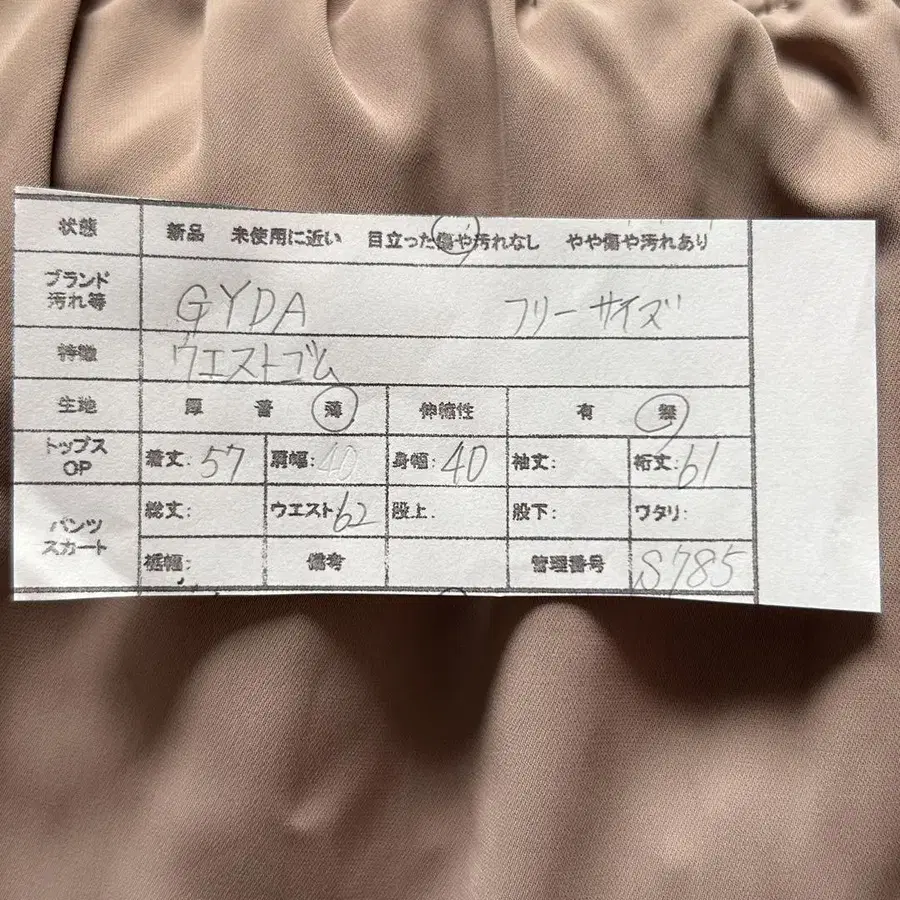 状態 新品 未使用に近い 目立った傷や汚れなし やや傷や汚れあり
ブランド
汚れ等 GYDA フリーサイズ
特徴 ウエストゴム
生地 厚 普 薄 伸縮性 有 無
トップス
OP 着丈:57 肩幅:40 身幅:40 袖丈: 裄丈:61
パンツ
スカート 総丈: ウエスト62 股上: 股下: ワタリ:
裾幅: 備考 管理番号 S785